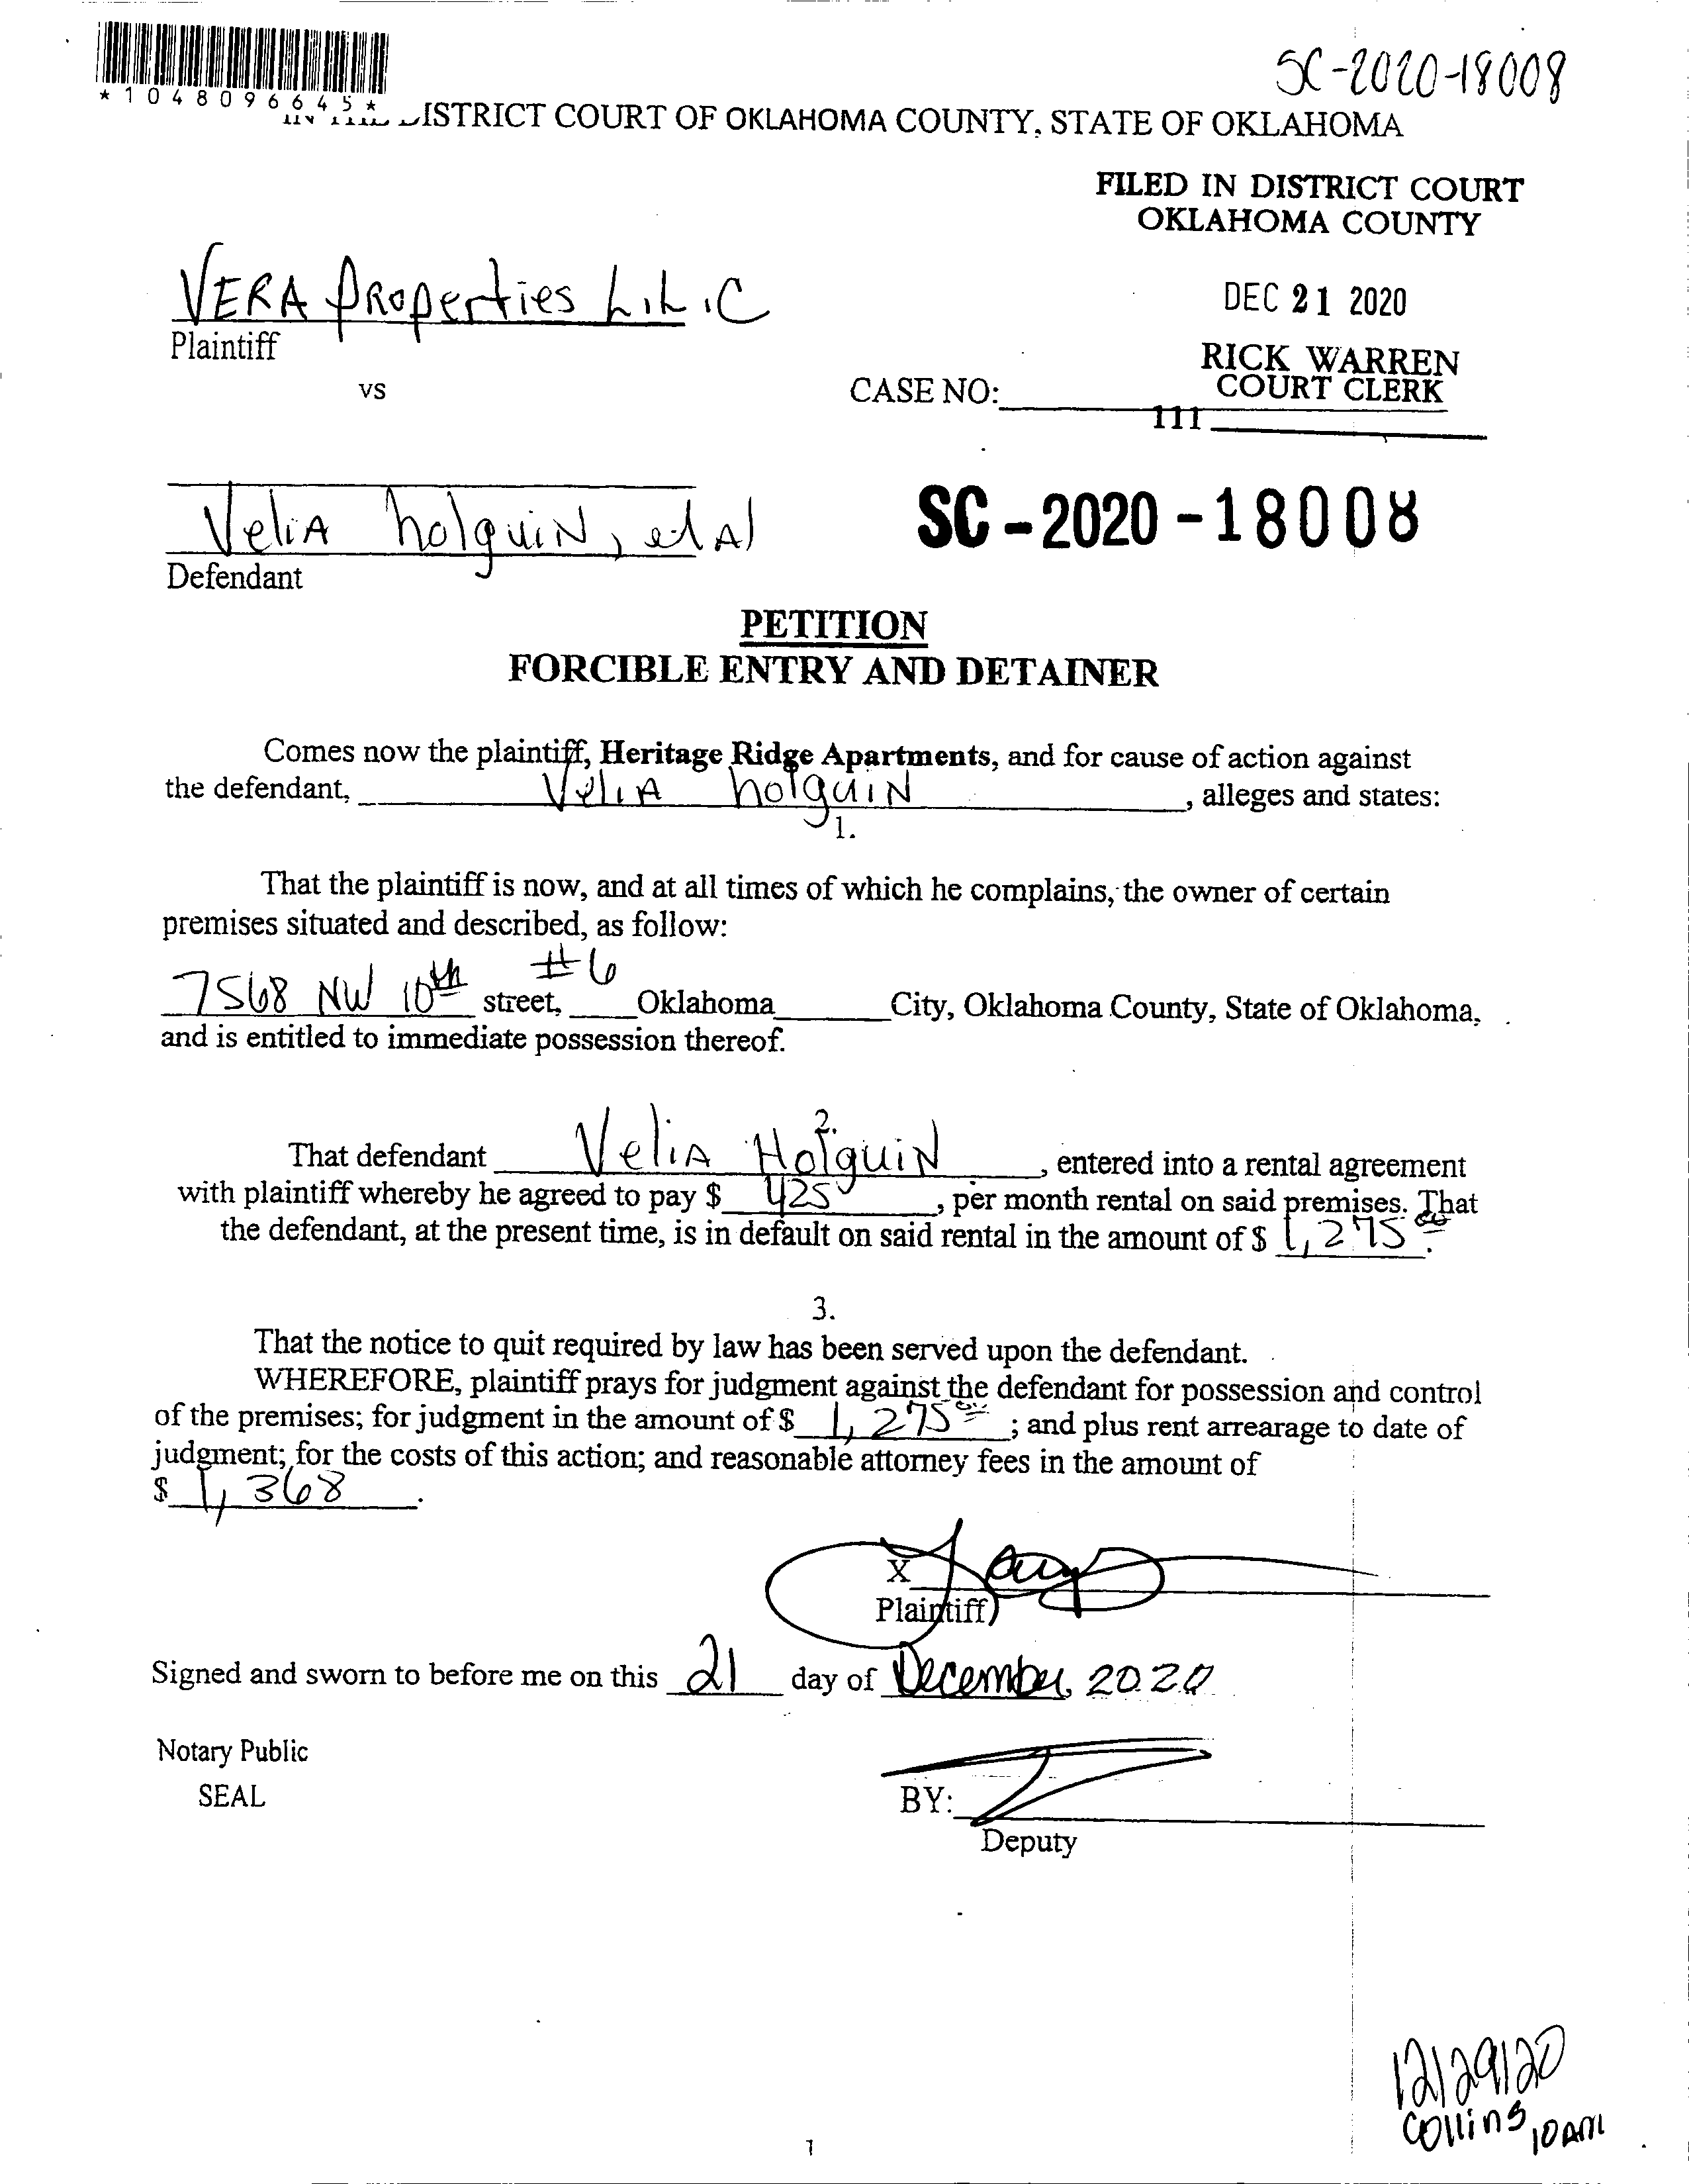 SC-2020-18008
*1048096645*
IN THE DISTRICT COURT OF OKLAHOMA COUNTY, STATE OF OKLAHOMA
FILED IN DISTRICT COURT
OKLAHOMA COUNTY
VERA Properties L.L.C
Plaintiff
DEC 21 2020
RICK WARREN
COURT CLERK
vs
CASE NO:
111
Velia holguin, et al
Defendant
SC-2020-18008
PETITION
FORCIBLE ENTRY AND DETAINER
Comes now the plaintiff, Heritage Ridge Apartments, and for cause of action against
the defendant, Velia holguin, alleges and states:
1.
That the plaintiff is now, and at all times of which he complains, the owner of certain
premises situated and described, as follow:
7568 NW 10th street, #6 Oklahoma City, Oklahoma County, State of Oklahoma,
and is entitled to immediate possession thereof.
2.
That defendant Velia Holguin, entered into a rental agreement
with plaintiff whereby he agreed to pay $ 425, per month rental on said premises. That
the defendant, at the present time, is in default on said rental in the amount of $ 1,275 00.
3.
That the notice to quit required by law has been served upon the defendant.
WHEREFORE, plaintiff prays for judgment against the defendant for possession and control
of the premises; for judgment in the amount of $ 1,275 00; and plus rent arrearage to date of
judgment; for the costs of this action; and reasonable attorney fees in the amount of
$ 1,368.
X
Plaintiff
Signed and sworn to before me on this 21 day of December, 2020
Notary Public
SEAL
BY:
Deputy
12/29/20
Collins 10AM
1